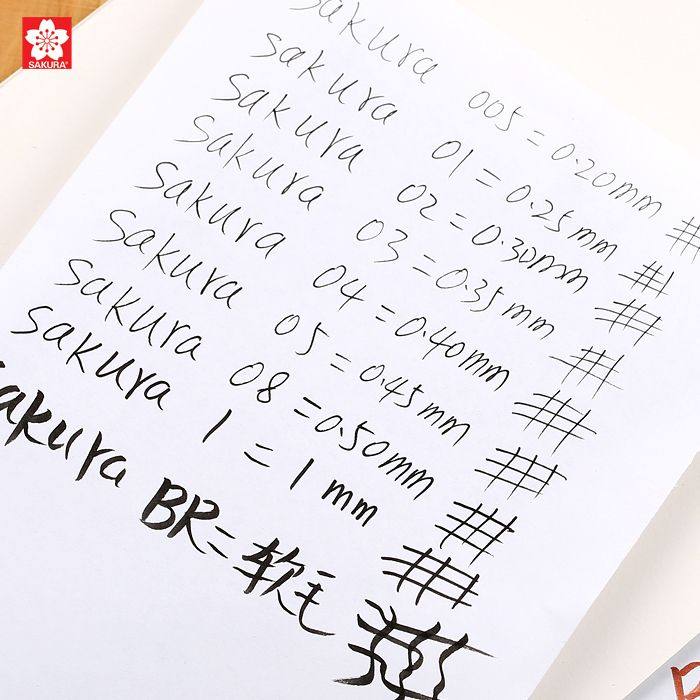 SAKURA
sakura 005 = 0.20mm
sakura 01 = 0.25mm
sakura 02 = 0.30mm
sakura 03 = 0.35mm
sakura 04 = 0.40mm
sakura 05 = 0.45mm
sakura 08 = 0.50mm
sakura 1 = 1mm
sakura BR = 软毛